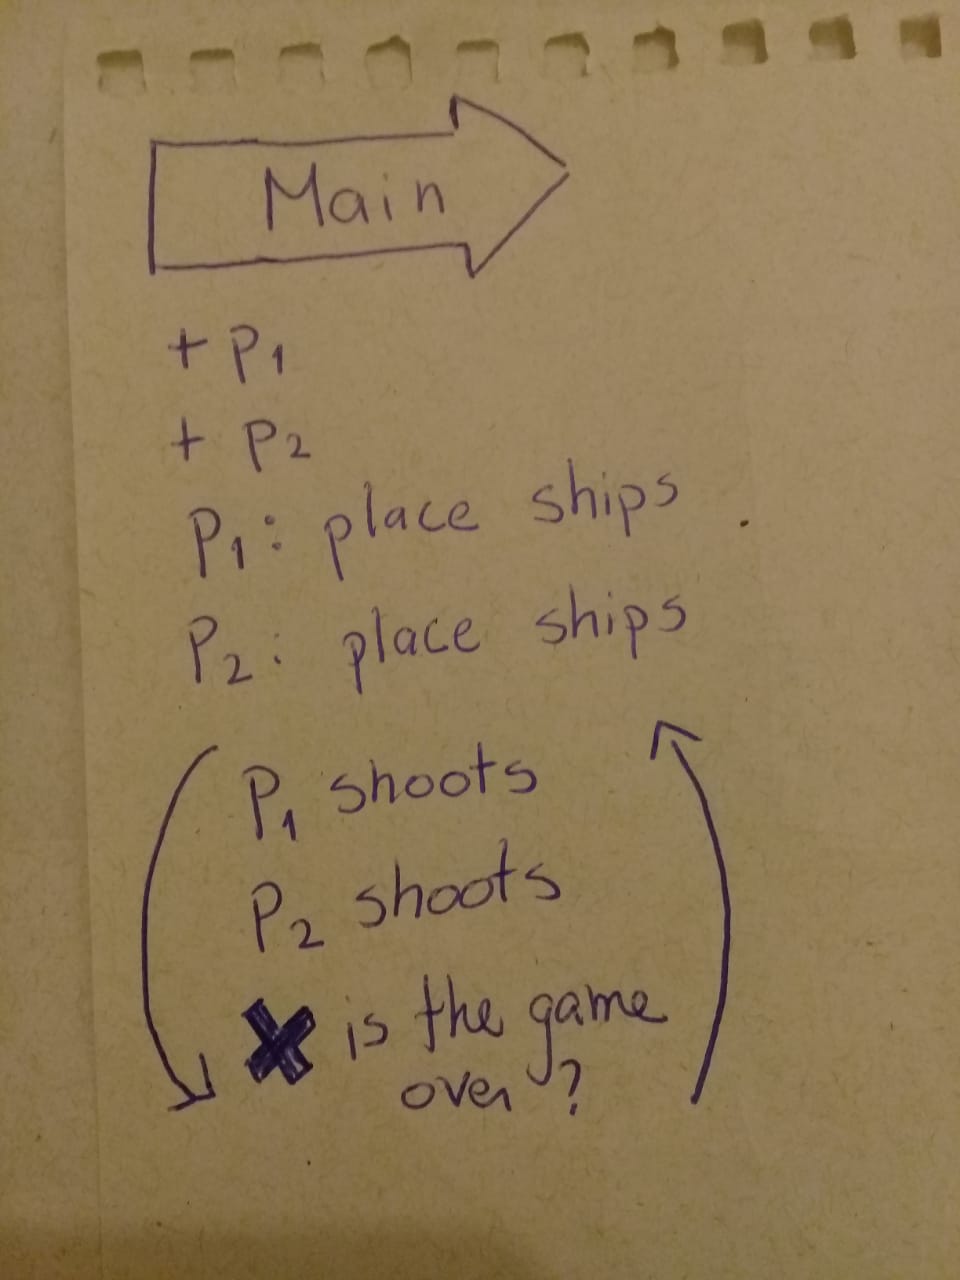 Main
+ P1
+ P2
P1: place ships
P2: place ships
P1 shoots
P2 shoots
is the game
over?